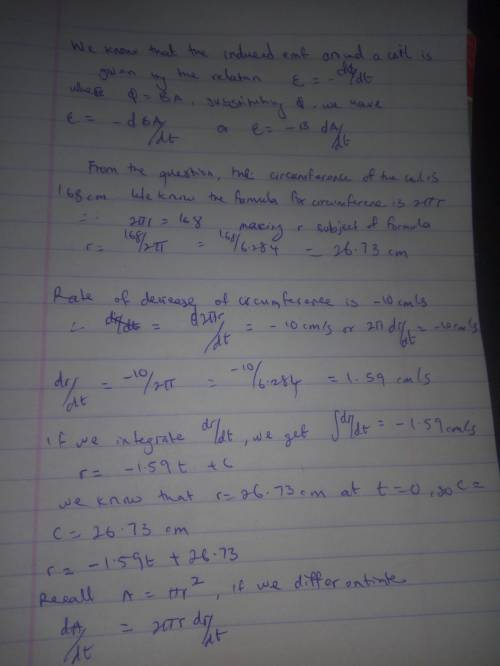 We know that the induced emf around a coil is
given by the relation ε = -dφ/dt
where φ = BA, substituting φ. we have
ε = -dBA/dt or ε = -B dA/dt
From the question, the circumference of the coil is
168 cm We know the formula for circumference is 2πr
∴ 2πr = 168 making r subject of formula
r = 168/2π = 168/6.284 = 26.73 cm
Rate of decrease of circumference is -10 cm/s
∴ = d2πr/dt = -10 cm/s or 2π dr/dt = -10 cm/s
dr/dt = -10/2π = -10/6.284 = 1.59 cm/s
if we integrate dr/dt, we get ∫dr/dt = -1.59 cm/s
r = -1.59t + C
we know that r = 26.73 cm at t = 0, so C =
C = 26.73 cm
r = -1.59t + 26.73
Recall A = πr², if we differentiate
dA/dt = 2πr dr/dt